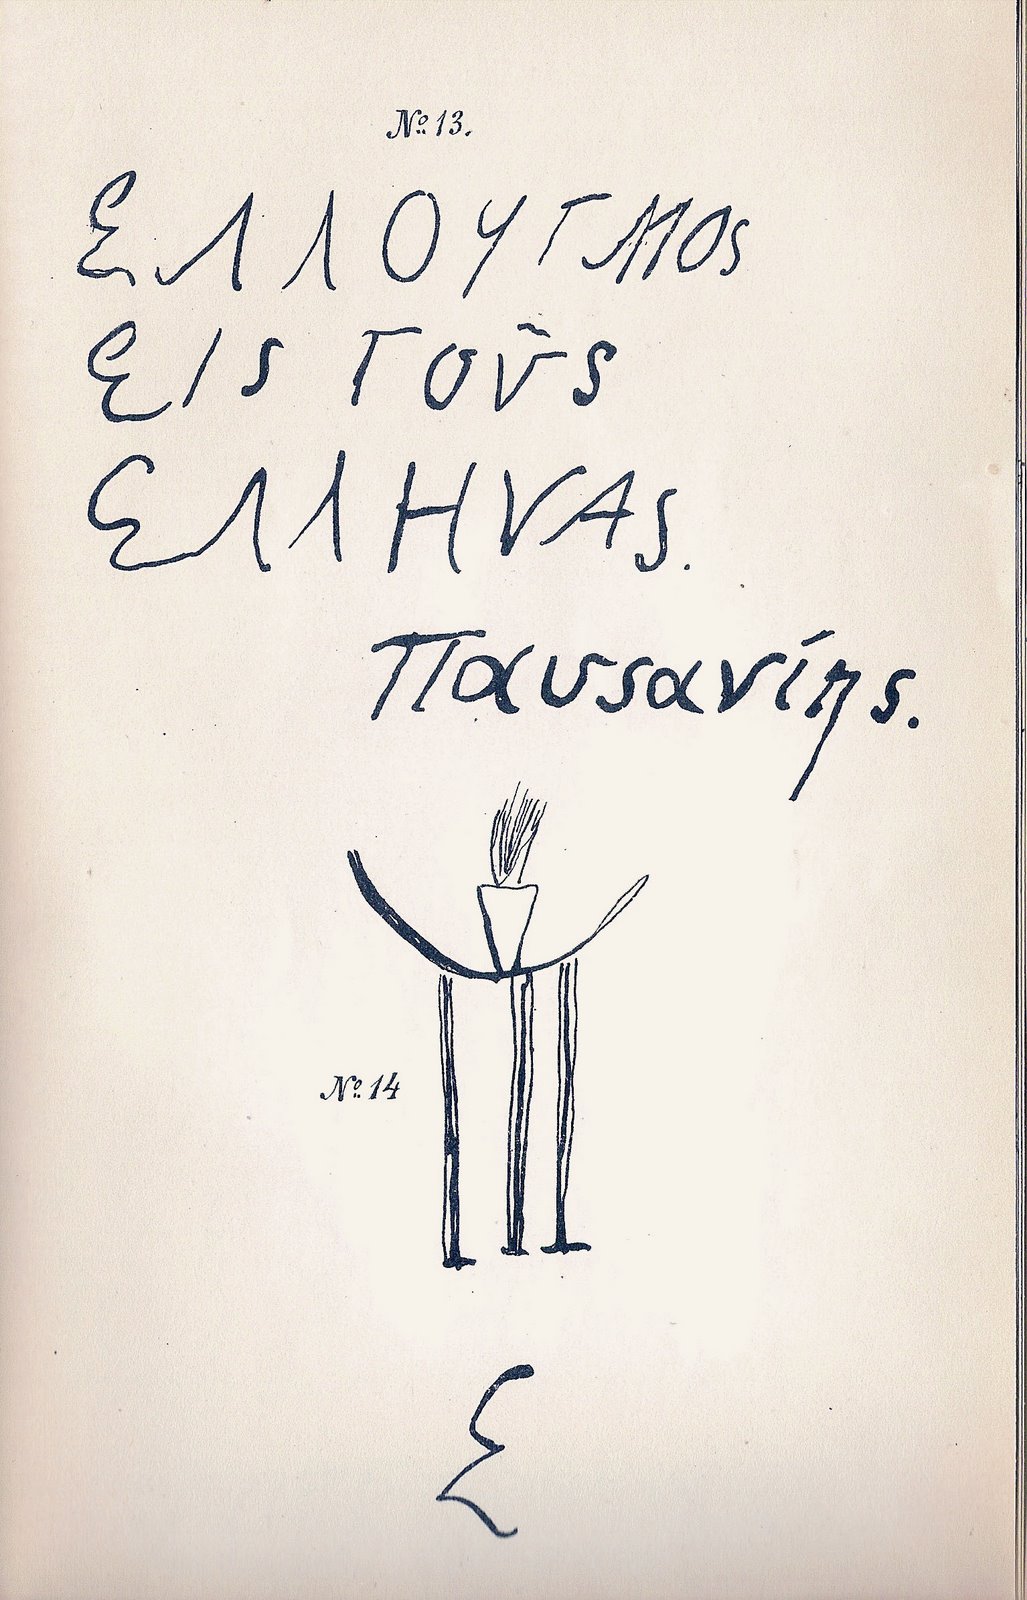 No. 13.
ΕΛΛΟΥΓΜΟς
ΕΙς ΤΟῦς
ΕΛΛΗΝΑς.
Παυσανίης.
No. 14
Σ